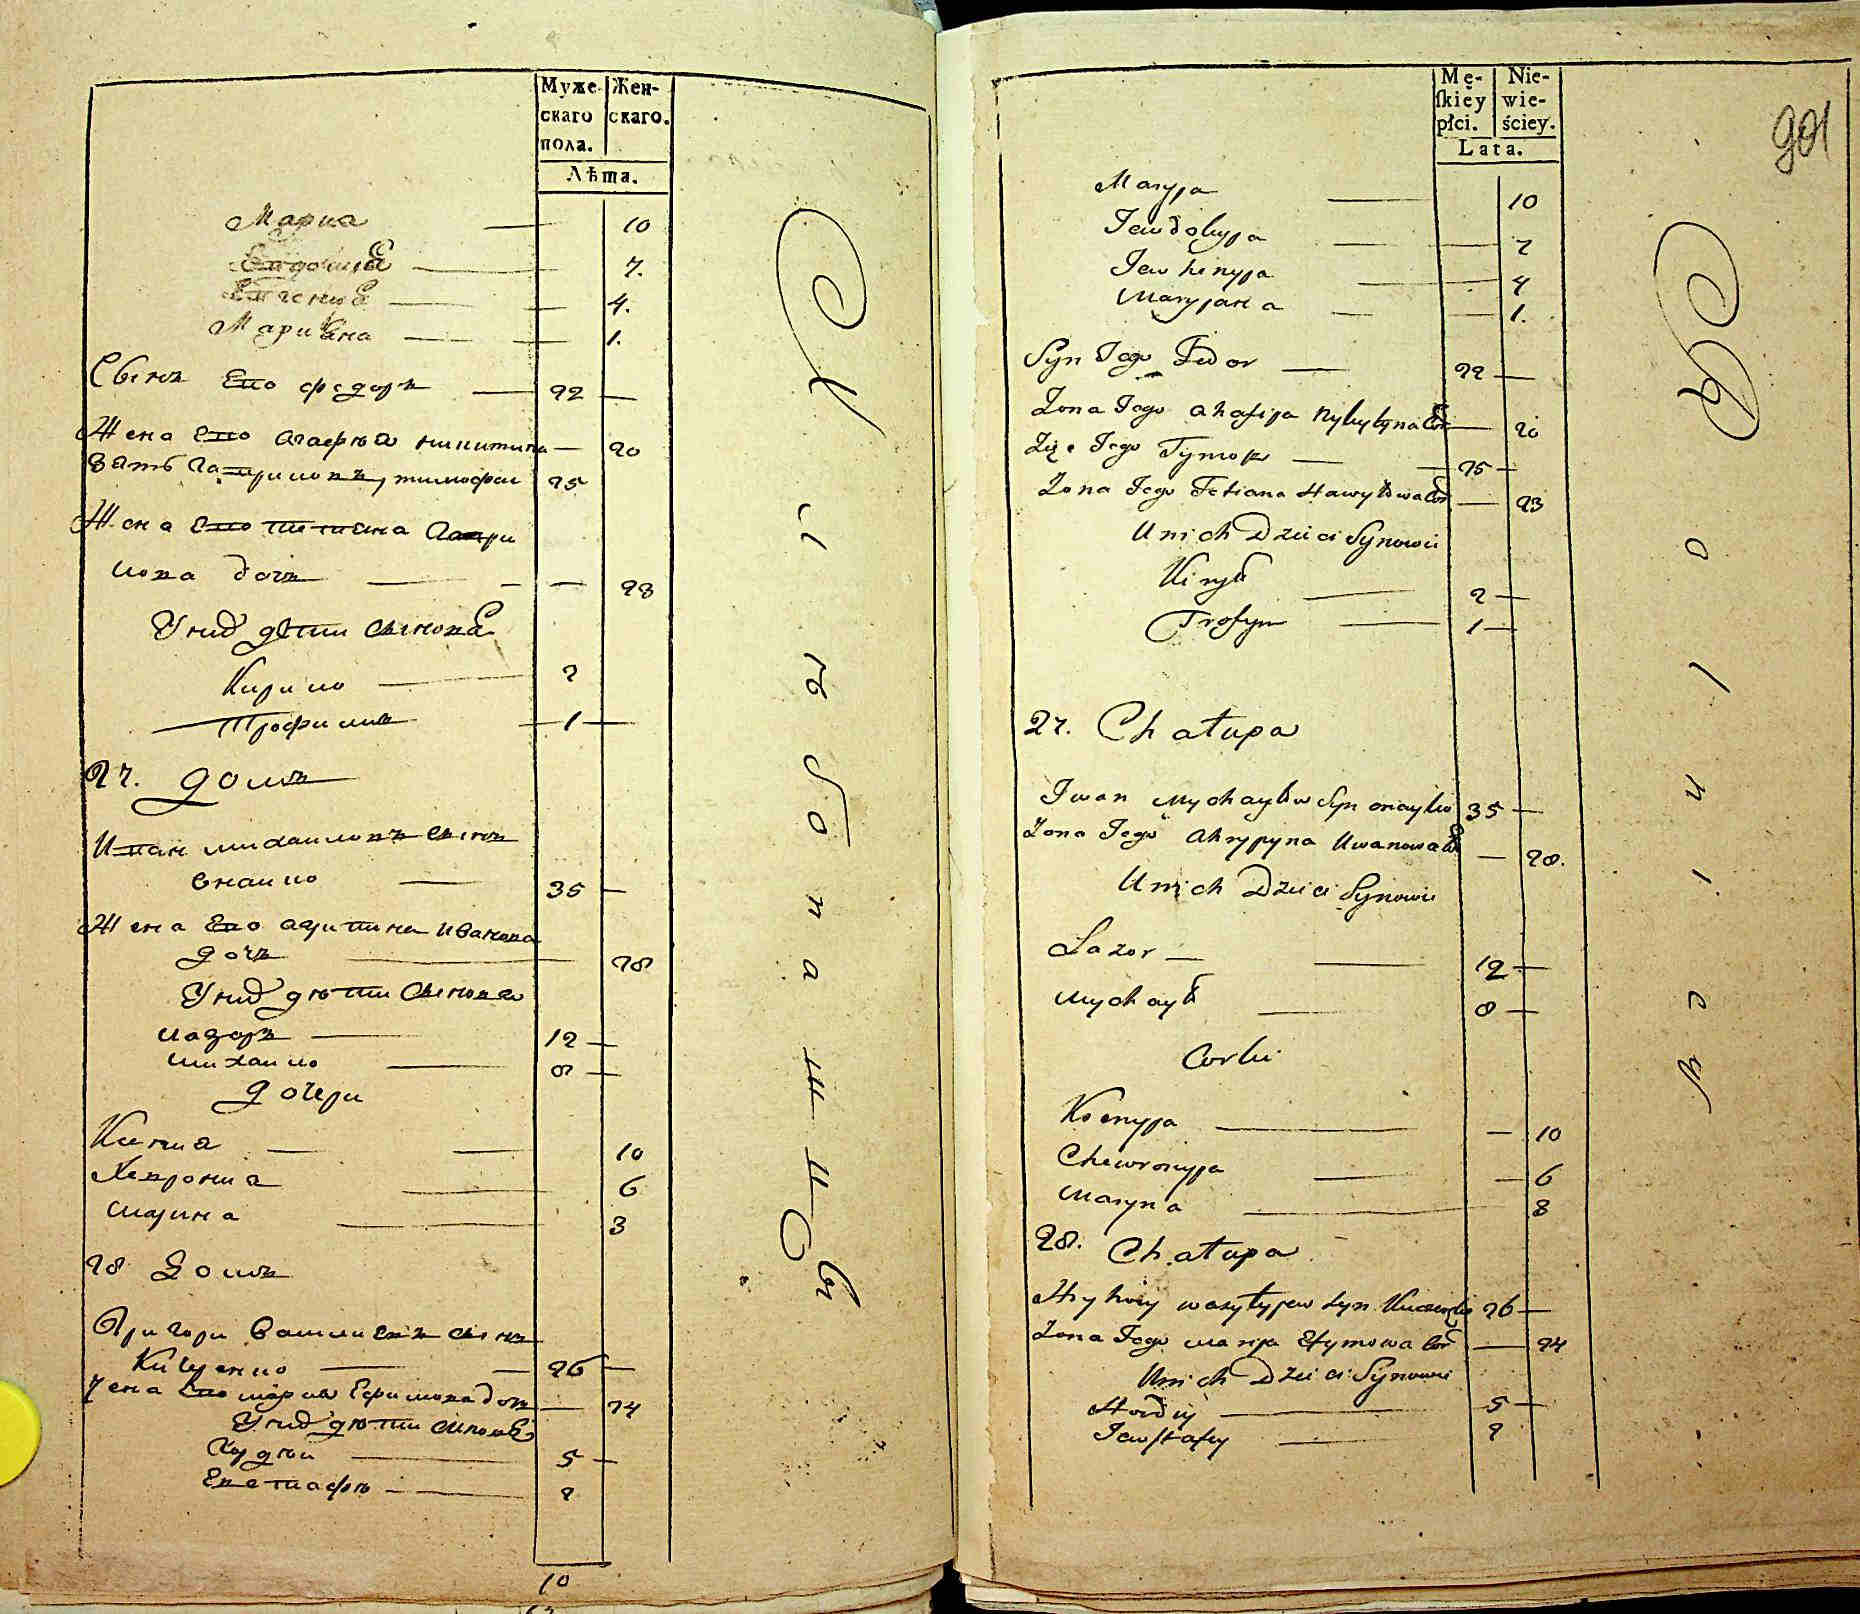 Муже-
скаго
пола.
Жен-
скаго.
Лѣта.
Мариа 10
Евдокиа 7.
Евгениа 4.
Мариана 1.
Сынъ Его федоръ 22
Жена Его агафиа никитина 20
Зять гавриловъ, тимофеи 25
Жена Его татиана гаври
лова дочь 23
Унид дѣти синова
Кирило 2
Трофимъ 1
27. домъ
Иван михаиловъ синъ
35
Жена Его Иванова
дочь 28
Унид дѣти синова
лазоръ 12
михаило 8
дочери
Ксениа 10
Хеврониа 6
марина 3
28 Домъ
Григори Василиевъ синъ
26
Жена Его мариа Ефимова дочь 24
Унид дѣти синова
Гордѣи 5
Евстафи 2
10
Mę-
skiéy
płci.
Nie-
wie-
ściey.
Lata.
901
Maryja 10
Jewdokyja 7
Jewhenyja 4
Maryjana 1.
Syn Jego Fedor 22
Zona Jego ahafija Nykytyna Cor 20
Zięć Jego Tymofi 25
Zona Jego Tetiana Hawryłowa Cor 23
Unich Dzieci Synowie
Kiryło
2
Trofym 1
27. Chałupa
Iwan Mychayłow Syn 35
Zona Jego Ahrypyna Iwanowa Cor 28.
Unich Dzieci Synowie
Łazor 12
Mychayło 8
Corki
Ksenyja 10
Chewronyja 6
Maryna 3
28. Chałupa
Hryhory Wasyłyjew Syn 26
Zona Jego Marija Efymowa Cor 24
Unich Dzieci Synowie
Hordij 5
Jewstafiy 2